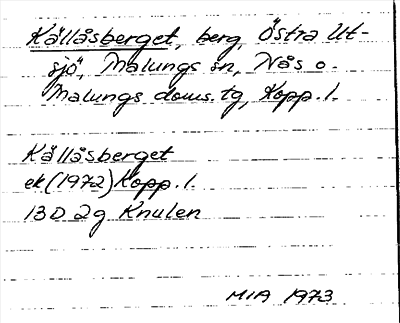 Källåsberget, berg, Östra Ut-
sjö, Malungs sn, Nås o.
Malungs doms.tg, Kopp. l.
Källåsberget
ek (1972) Kopp. l.
13D 2g Knulen
MIA 1973